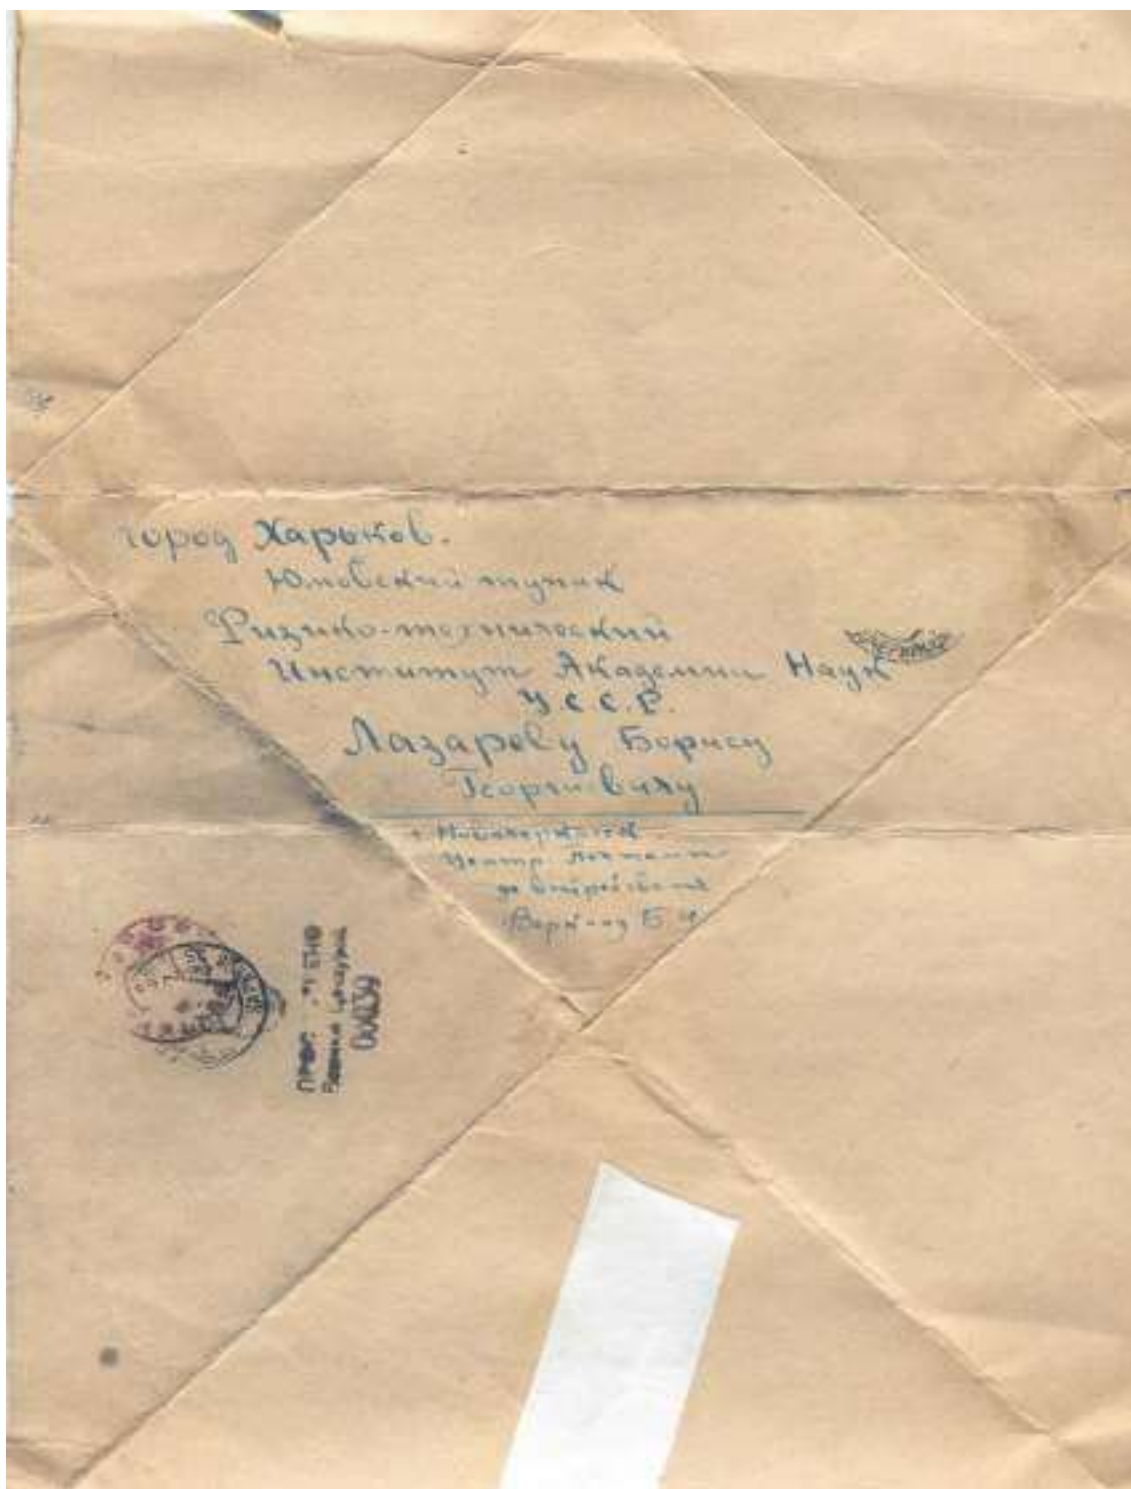 город Харьков.
Юмовский тупик
Физико-технический
Институт Академии Наук
У.С.С.Р.
Лазареву Борису
Георгиевичу
г. Новочеркасск
Центр. Почтамт
до востребования
Б. И.
Военной Цензурой